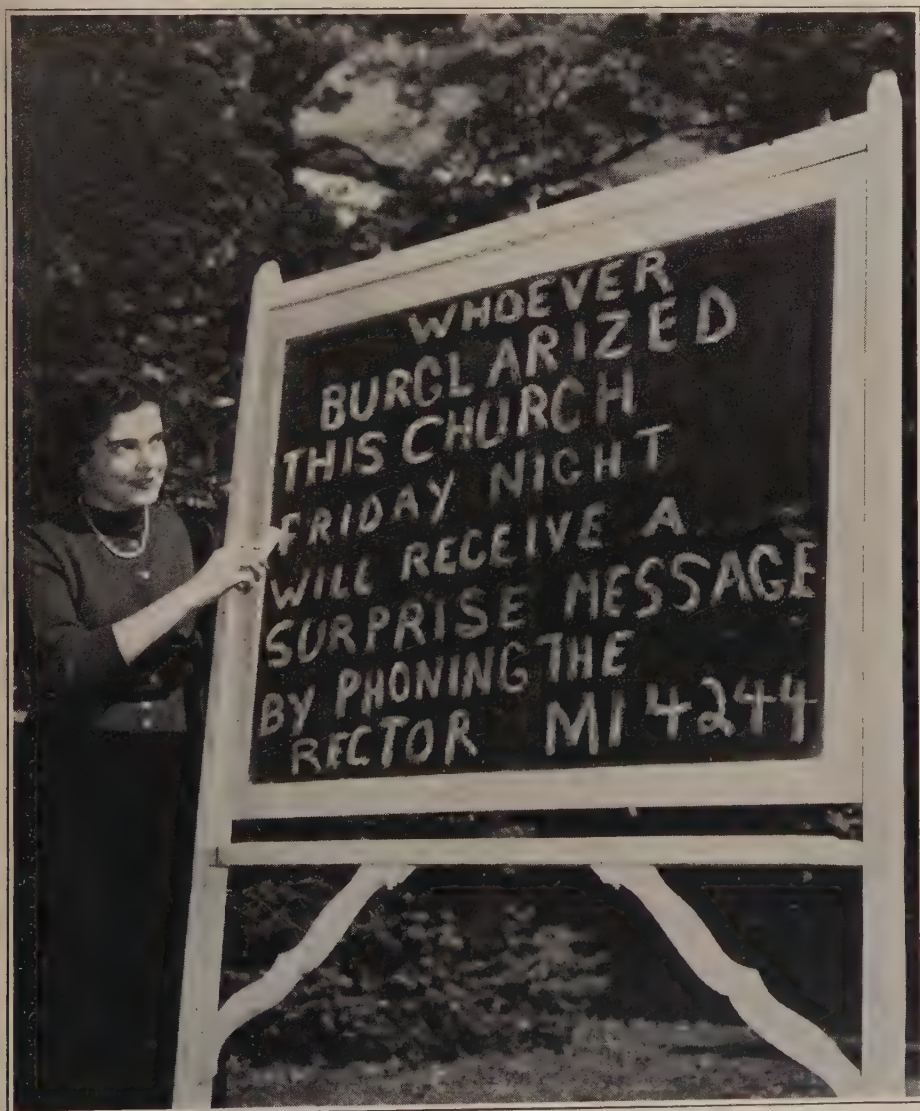 WHOEVER
BURGLARIZED
THIS CHURCH
FRIDAY NIGHT
WILL RECEIVE A
SURPRISE MESSAGE
BY PHONING THE
RECTOR MI 4244